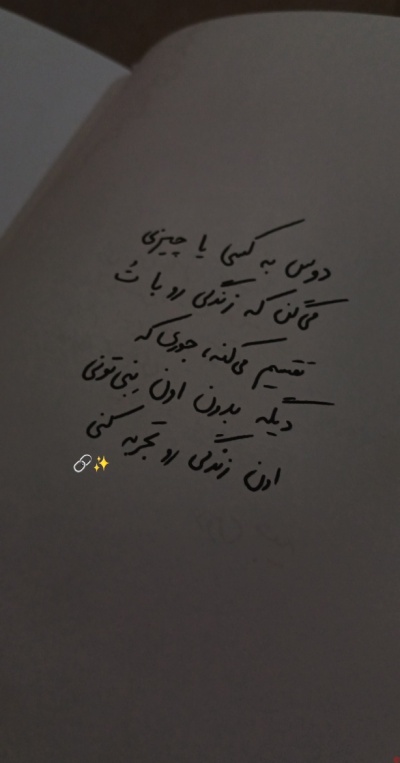 دوس به کسی یا چیزی
می‌گن که زندگی رو با تُ
تقسیم می‌کنه، جوری که
دیگه بدون اون نِمی‌تونی
اون زندگی رو تجربه کنی
🔗✨